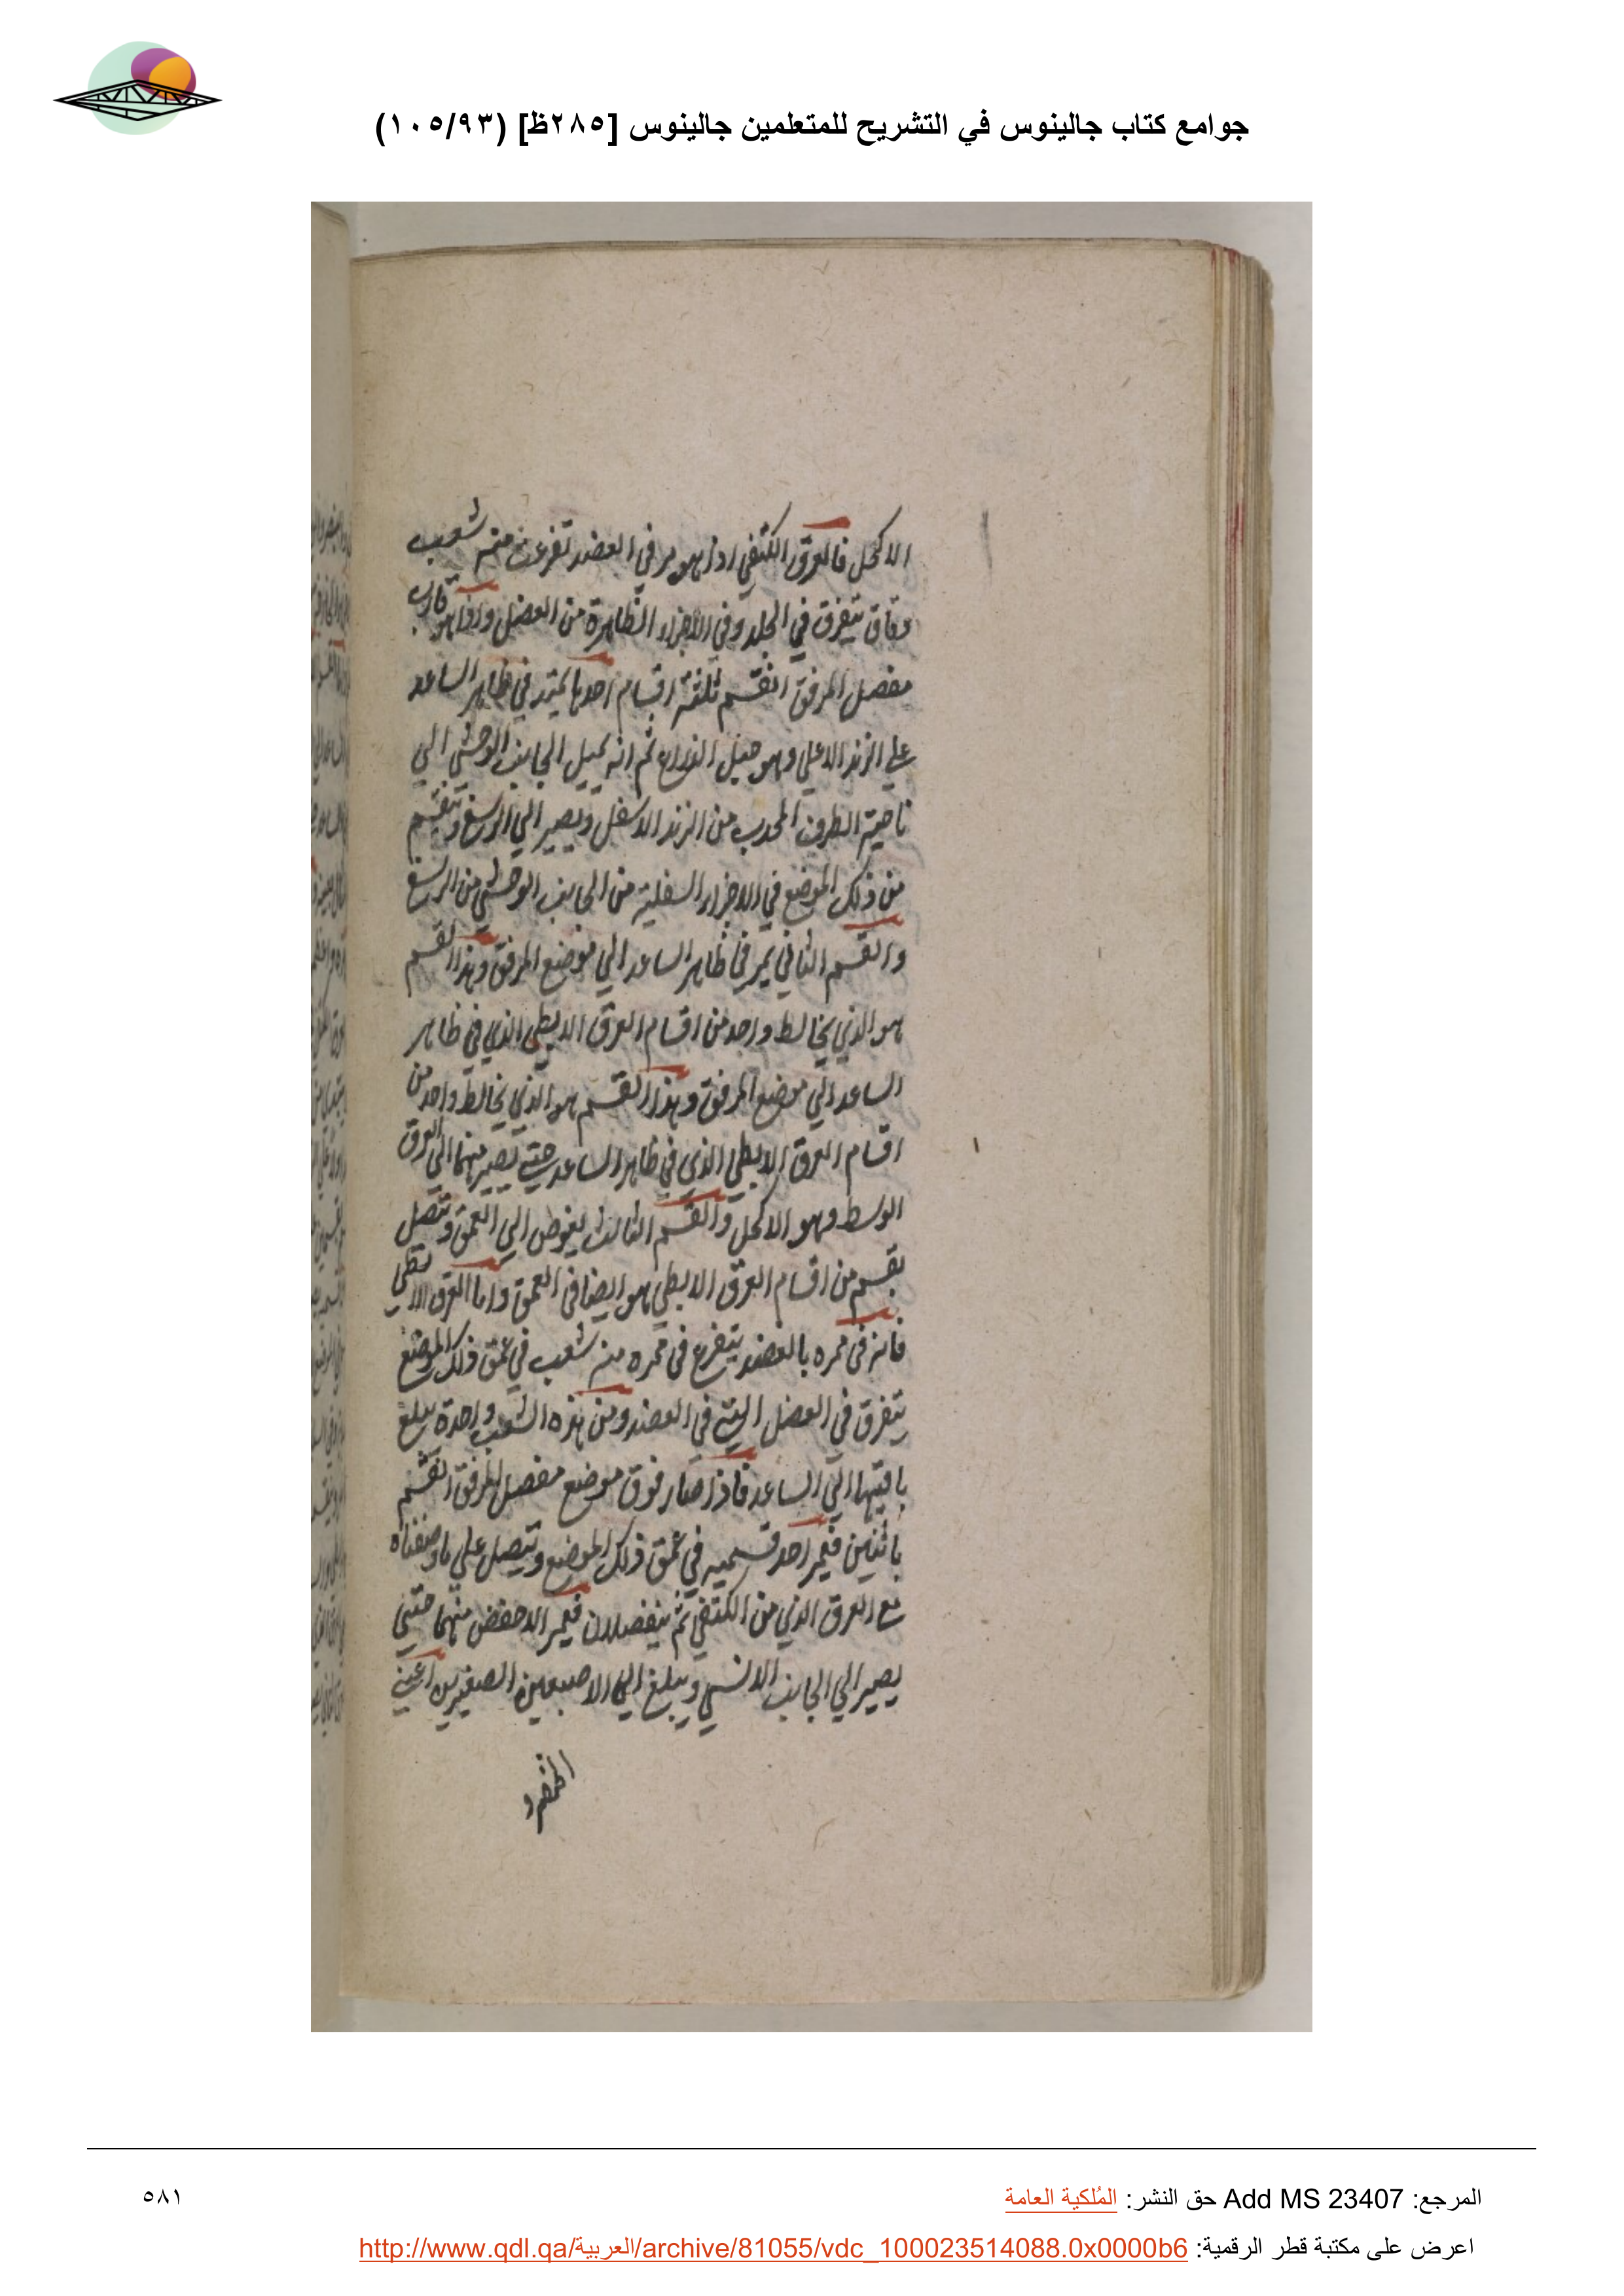 جوامع كتاب جالينوس في التشريح للمتعلمين جالينوس [٢٨٥ظ] (١٠٥/٩٣)
الاكحل فالعرق الكتفي اذا هو مر في العضد تفرعت منه شعب
دقاق تتفرق في الجلد وفي الاجزاء الظاهرة من العضل واذا هو قارب
مفصل المرفق انقسم ثلثة اقسام احدها يمتد في ظاهر الساعد
علي الزند الاعلي وهو حبل الذراع ثم انه يميل الجانب الوحشي الي
ناحية الطرف المحدب من الزند الاسفل ويصير الي الرسغ وينقسم
من ذلك الموضع في الاجزاء السفلية من الجانب الوحشي من الرسغ
والقسم الثاني يمر في ظاهر الساعد الي موضع المرفق وهذا القسم
هو الذي يخالط واحد من اقسام العرق الابطي الذي في ظاهر
الساعد الي موضع المرفق وهذا القسم هو الذي يخالط واحد من
اقسام العرق الابطي الذي في ظاهر الساعد حتي يصير منهما الي العرق
الوسط وهو الاكحل والقسم الثالث يغوص الي العمق وتتصل
بقسم من اقسام العرق الابطي هو ايضا في العمق واما العرق الابطي
فانه في ممره بالعضد يتفرع في ممره منه شعب في عمق ذلك الموضع
يتفرق في العضل التي في العضد ومن هذه الشعب واحدة يبلغ
باقيتها الي الساعد فاذا صار فوق موضع مفصل المرفق انقسم
باثنين فيمر احد قسميه في عمق ذلك الموضع ويتصل علي ما وصفناه
مع العرق الذي من الكتفي ثم ينفصلان فيمر الاخفض منهما حتي
يصير الي الجانب الانسي ويبلغ الي الاصبعين الصغيرين اعني
المرجع: Add MS 23407 حق النشر: المُلكية العامة
٥٨١
اعرض على مكتبة قطر الرقمية: http://www.qdl.qa/العربية/archive/81055/vdc_100023514088.0x0000b6